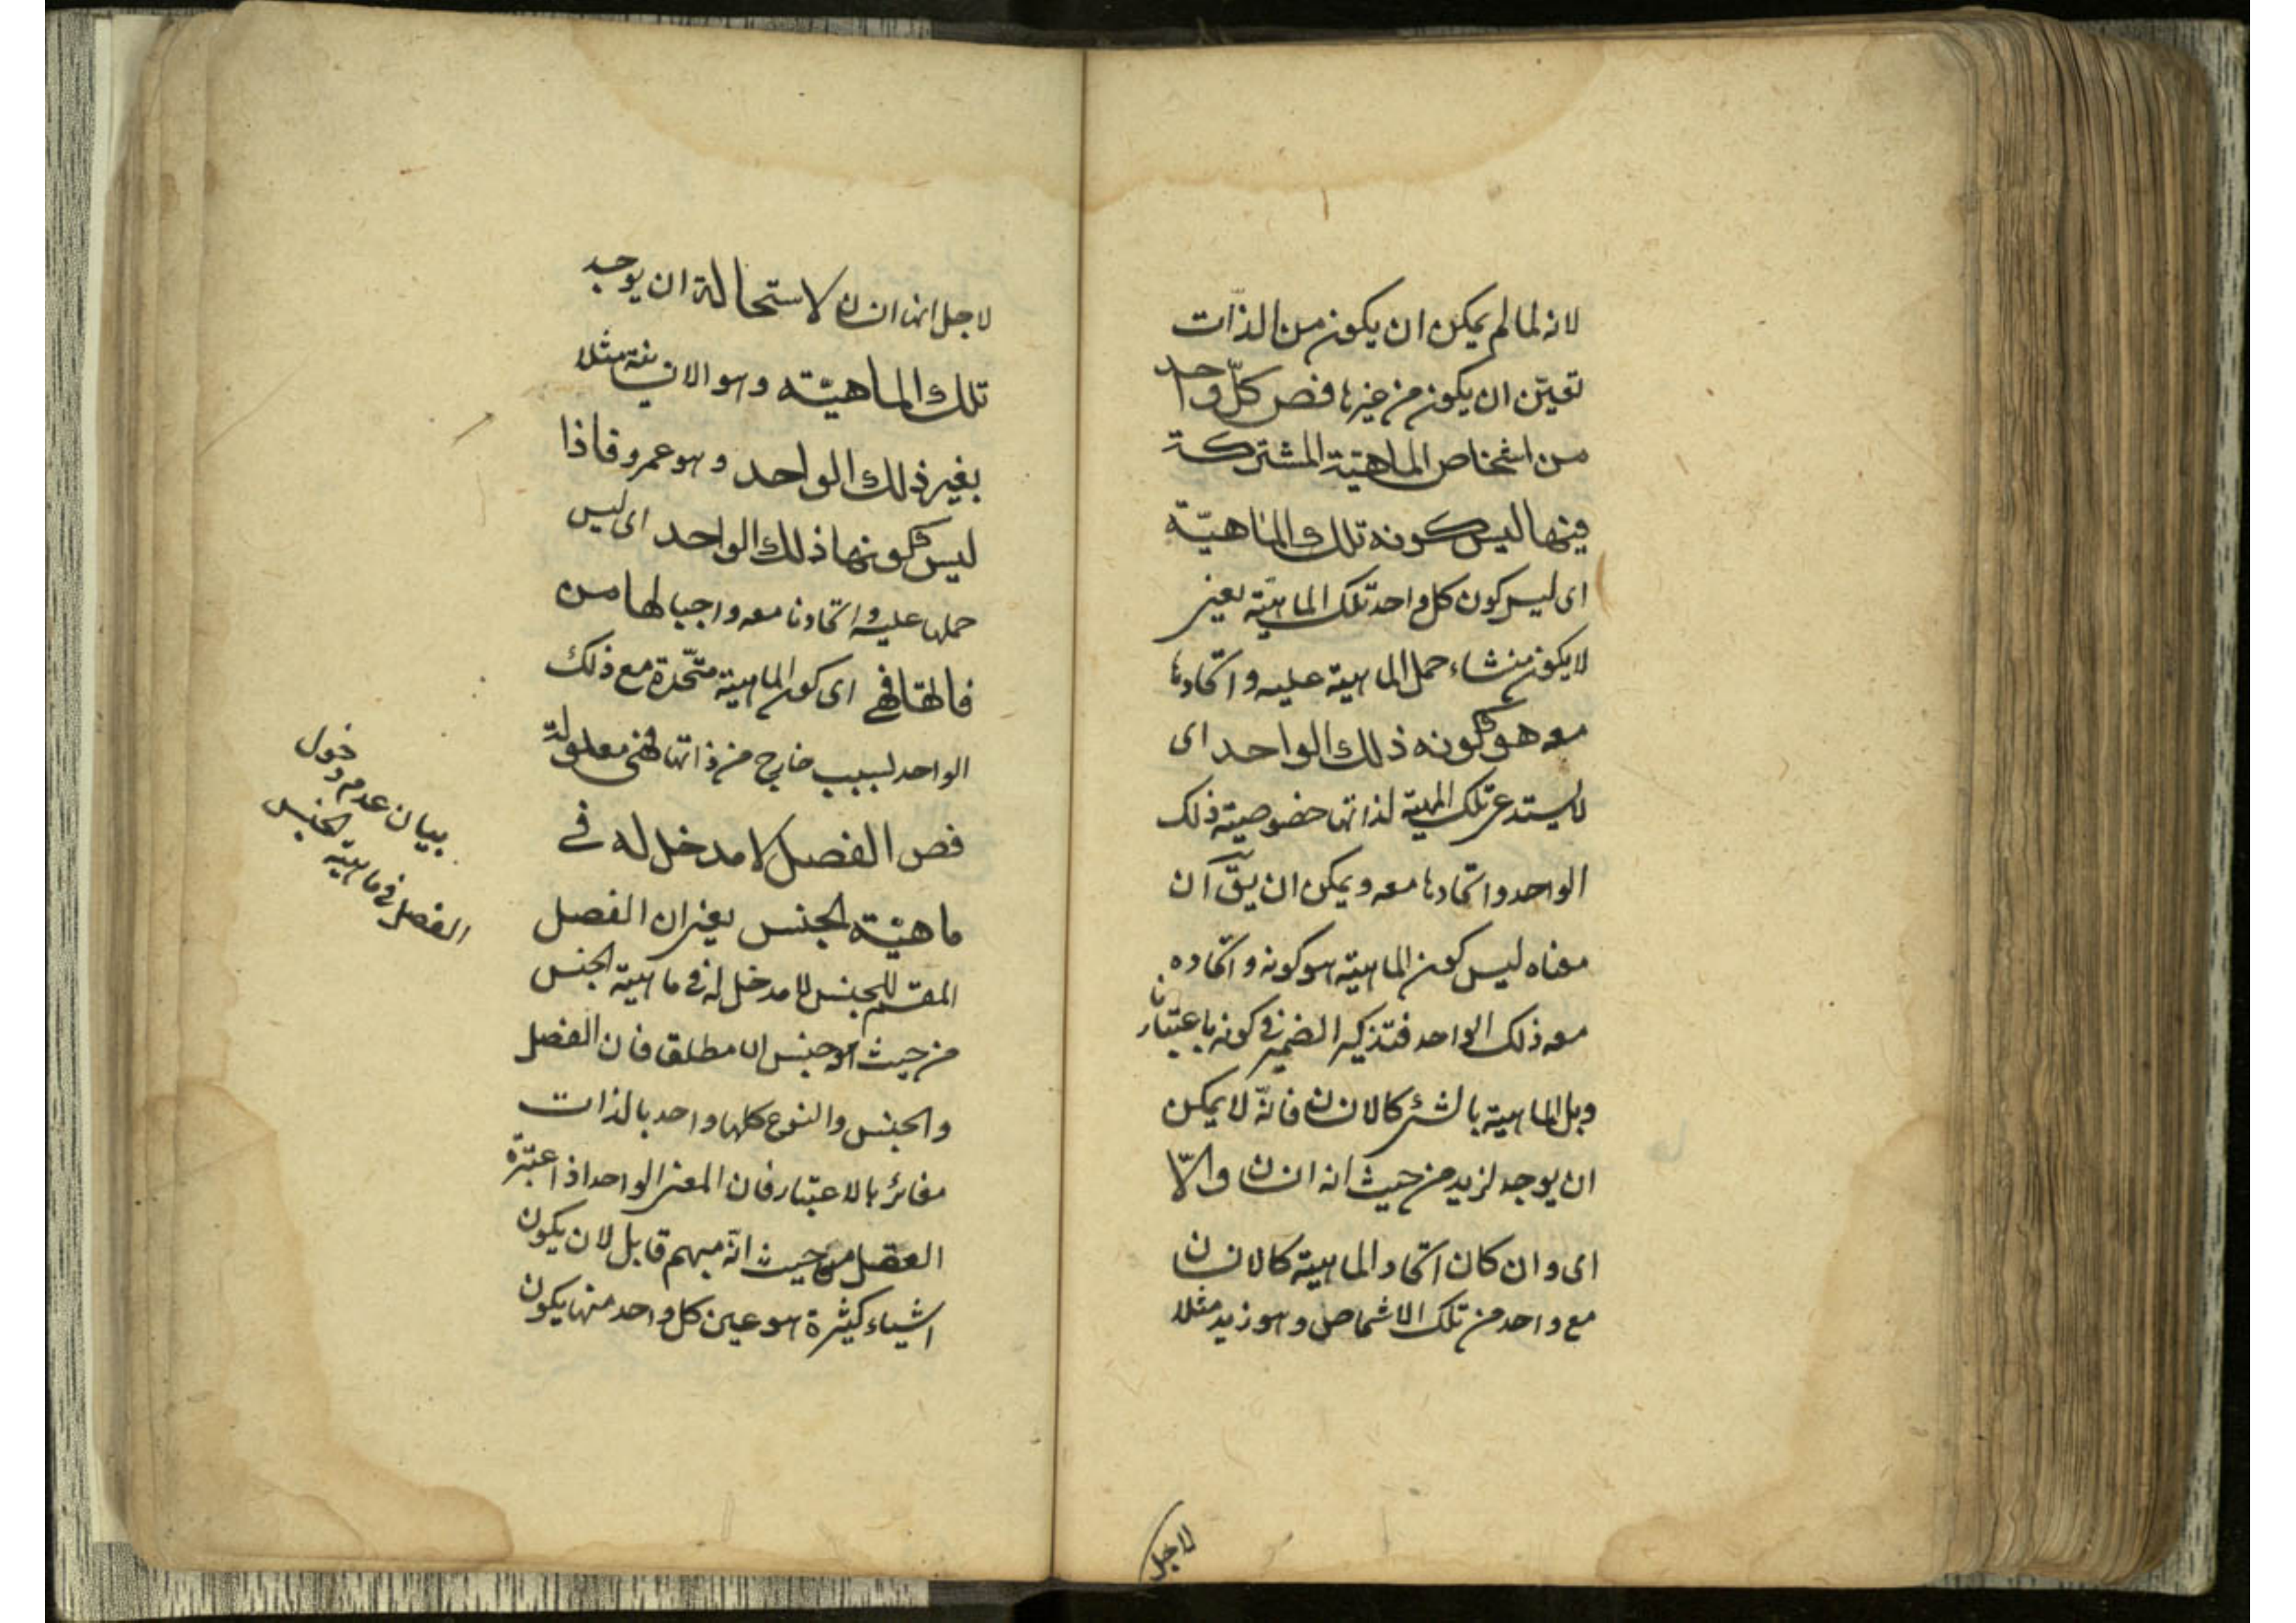 لانه لما لم يمكن ان يكون من الذّات
تعيّن ان يكون من غيرها فص كلّ واحد
من اشخاص الماهيّة المشتركة
فيها ليس كونه تلك الماهيّة
اى ليس كون كل واحد تلك الماهيّة يعنى
لا يكون منشاء حمل الماهية عليه و اتحادها
معه هو كونه ذلك الواحد اى
لا يستدعى تلك المهية لذاتها خصوصيّة ذلك
الواحد و اتحادها معه و يمكن ان يقّ ان
معناه ليس كون الماهية هو كونه و اتحاده
معه ذلك الواحد فتذكير الضمير فى كونه باعتبار
الماهية بالشئ كالانسان فانّه لا يمكن
ان يوجد لزيد من حيث انه انسان و الّا
اى و ان كان اتحاد الماهية كالانسان
مع واحد من تلك الاشخاص و هو زيد مثلا
لاجل
لاجل انها انسان لاستحالة ان يوجد
تلك الماهيّته و هو الانسانية مثلا
بغير ذلك الواحد و هو عمرو فاذا
ليس كونها ذلك الواحد اى ليس
حملها عليه و اتحادها معه واجبا لها من
ذاتها فهى اى كون الماهية متّحدة مع ذلك
الواحد لسبب خارج من ذاتها فهى معلولة
فص الفصل لا مدخل له فى
ماهيّة الجنس يعنى ان الفصل
المقسّم للجنس لا مدخل له فى ماهية الجنس
من حيث هو جنس اى مطلق فان الفصل
و الجنس و النوع كلها واحد بالذات
مغائر بالاعتبار فان المعنى الواحد اذا اعتبره
العقل من حيث انّه مبهم قابل لان يكون
اشياء كثيرة هو عين كل واحد منها يكون
بيان عدم دخول
الفصل فى ماهية الجنس